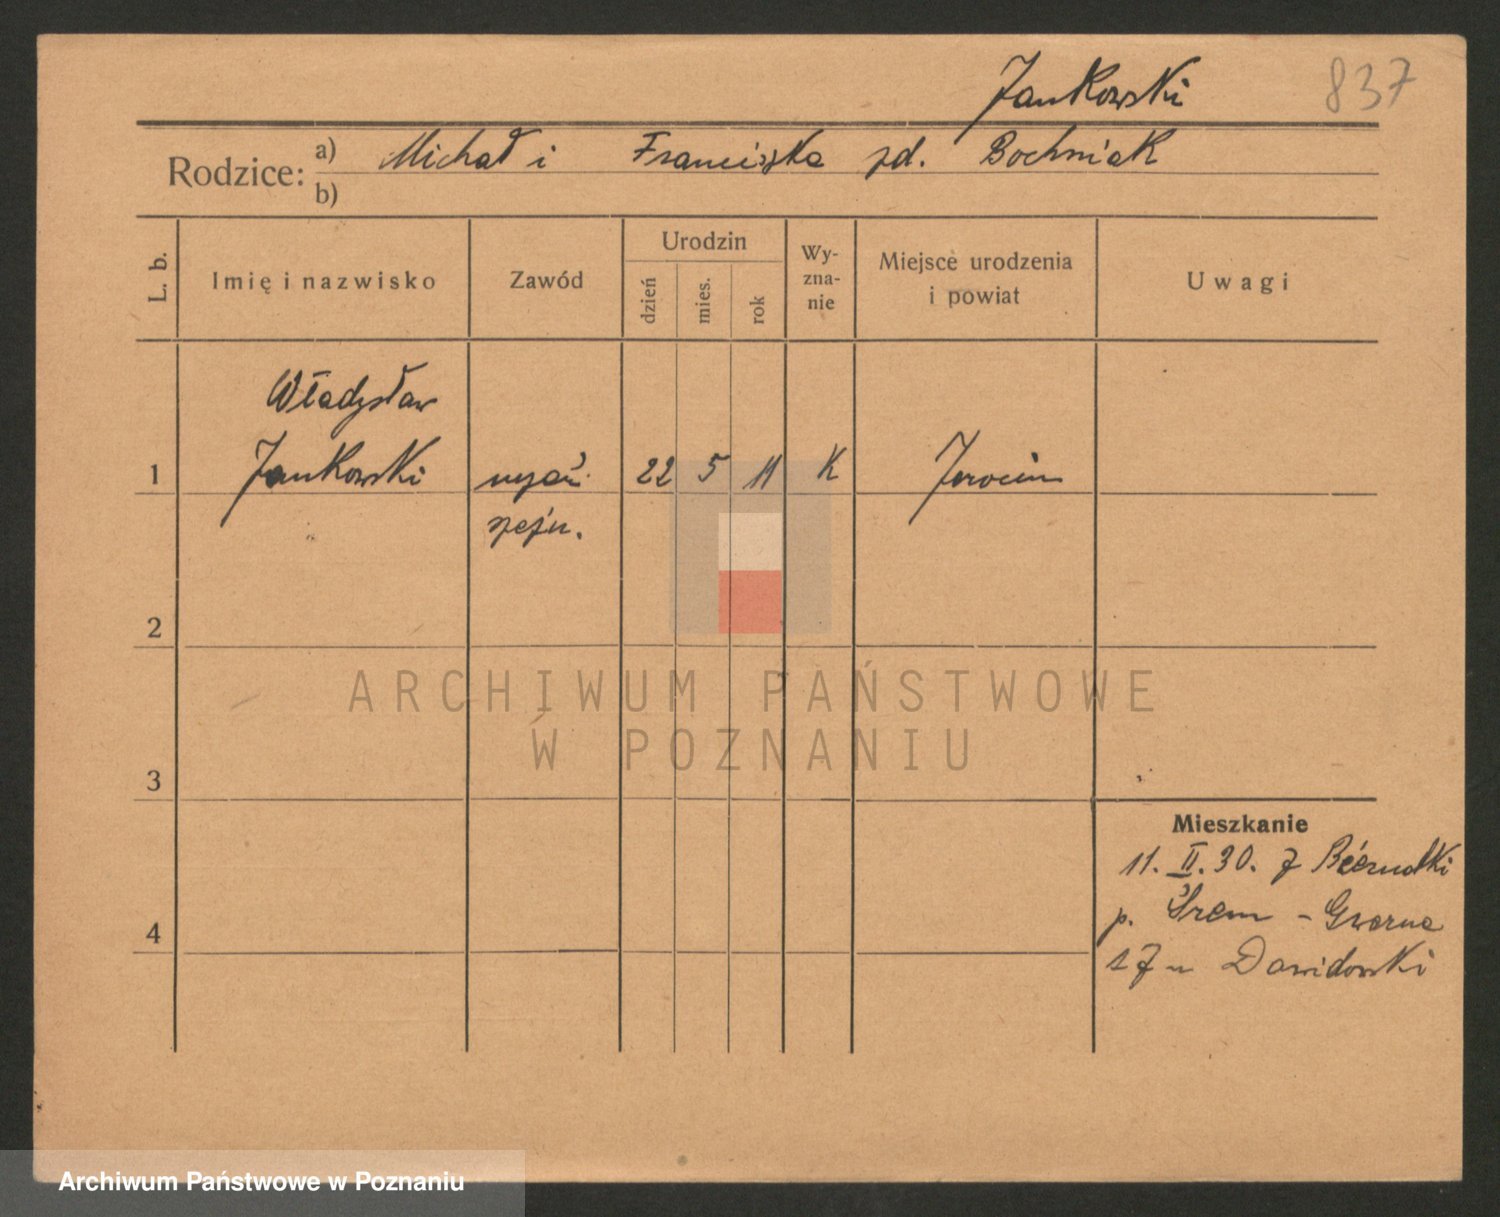 Jankowski
837
Rodzice:
a) Michał i Franciszka zd. Bochniak
b)
L. b.
Imię i nazwisko
Zawód
Urodzin
dzień
mies.
rok
Wy-
zna-
nie
Miejsce urodzenia
i powiat
Uwagi
Władysław
1 Jankowski 22 5 11 K Jarocin
2
3
4
Mieszkanie
11. II. 30. z Biernatki
p. Śrem - Gwarna
17 u Dawidowski
ARCHIWUM PAŃSTWOWE
W POZNANIU
Archiwum Państwowe w Poznaniu